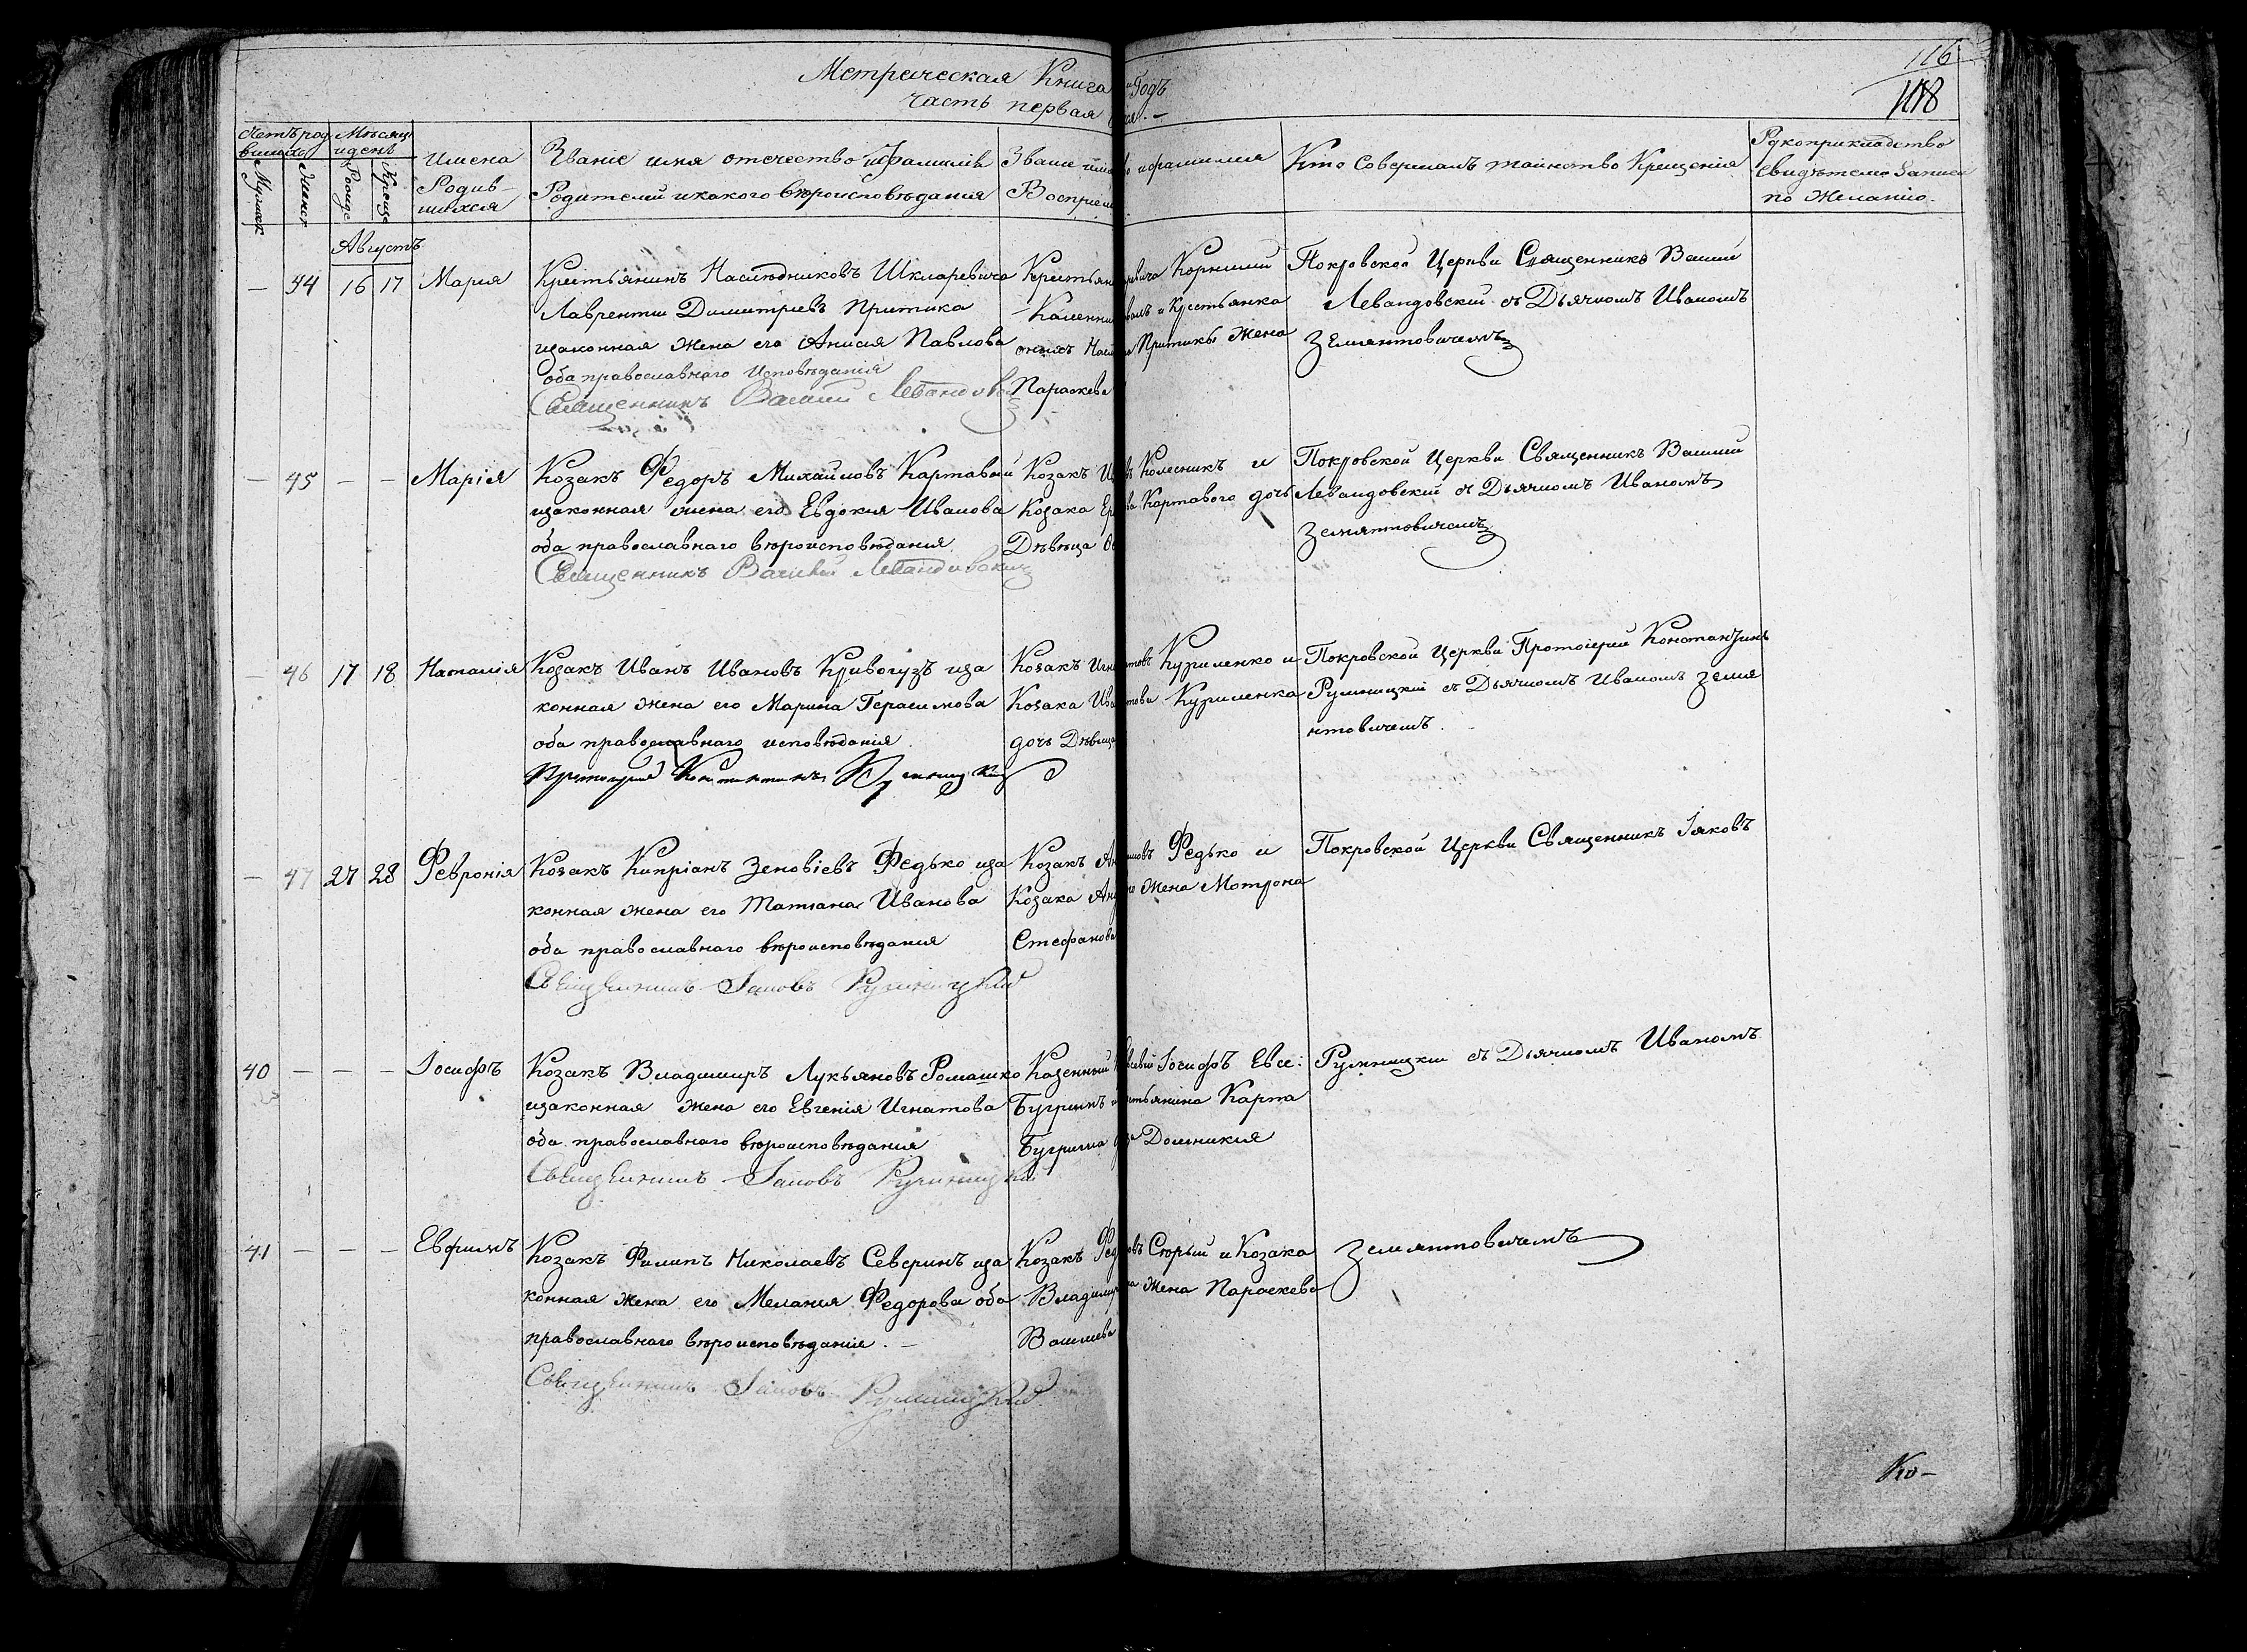 116
118
Метрическая Книга
Годъ
часть первая
Щетъ род
вшихъ
Мѣсяцъ
и день
Мужеск
Женск
Рожде
Креще
Имена
Родив-
шихся
Званіе имя отечество и Фамилія
Родителей и какого вѣроисповѣданія
Званіе имя
и фамилия
Восприем
Кто Совершалъ таинство Крещенія
Рукоприкладство
свидѣтелей Записи
по Желанію.
Августъ
— 44 16 17 Мария
Крестьянинъ Наслѣдниковъ Шкляревича
Лаврентий Димитриевъ Притика
изаконная жена его Анисия Павлова
оба православнаго исповѣданія
Священникъ Василий Левандовс
Крестьян
Корнилий
и Крестьянка
Притики жена
Параскева
Покровской Церкви Священникъ Василий
Левандовский съ Дьячкомъ Иваномъ
Земянтовичемъ
— 45 — — Марія
Козакъ Федоръ Михайловъ Картавый
изаконная жена его Евдокия Иванова
оба православнаго вѣроисповѣдания
Священникъ Василий Левандовский
Козакъ
Колесникъ и
Козака
Картавого дочь
Дѣвица
Покровской Церкви Священникъ Василий
Левандовский съ Дьячкомъ Иваномъ
Земянтовичемъ
— 46 17 18 Наталія
Козакъ Иванъ Ивановъ Кривогузъ иза
конная жена его Марина Герасимова
оба православнаго исповѣданія
Протоиерей Константинъ
Козакъ Игна
Куриленко и
Козака Ива
Куриленка
дочь Дѣвица
Покровской Церкви Протоіерей Константинъ
Румницкій съ Дьячкомъ Иваномъ Земя
нтовичемъ.
— 47 27 28 Февронія
Козакъ Кипріанъ Зеновіевъ Федько иза
конная жена его Татиана Иванова
оба православнаго вѣроисповѣдания
Священникъ Іаковъ Румницкий
Козакъ
Федько и
Козака Анд
жена Мотрона
Стефанова
Покровской Церкви Священникъ Іаковъ
40 — — — Іосифъ
Козакъ Владимиръ Лукьяновъ Ромашко
изаконная жена его Евгенія Игнатова
оба православнаго вѣроисповѣдания
Священникъ Іаковъ Румницкий
Казенный
Іосифъ Евсе:
Бугримъ
Карпа
Бугрима
Домникия
Румницкий съ Дьячкомъ Иваномъ
41 — — — Евфимъ
Козакъ Филипъ Николаевъ Северинъ иза
конная жена его Мелания Федорова оба
православнаго вѣроисповѣдания. —
Священникъ Іаковъ Румницкий
Козакъ Фед
Сѣрый и Козака
Владимир
жена Параскева
Василиева
Земянтовичемъ
Ко-